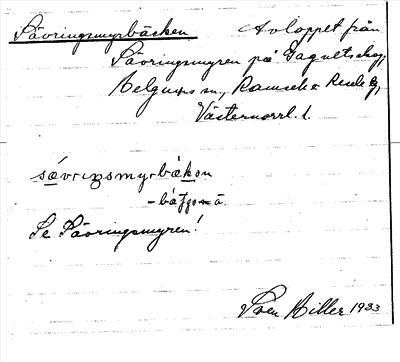 Sävringsmyrbäcken Avloppet från
Sävringsmyren på skog,
Helgums sn, Ramsele & Resele tg,
Västernorrl. l.
sævriŋsmyrbækən
Se Sävringsmyren!
Sven Hiller 1933